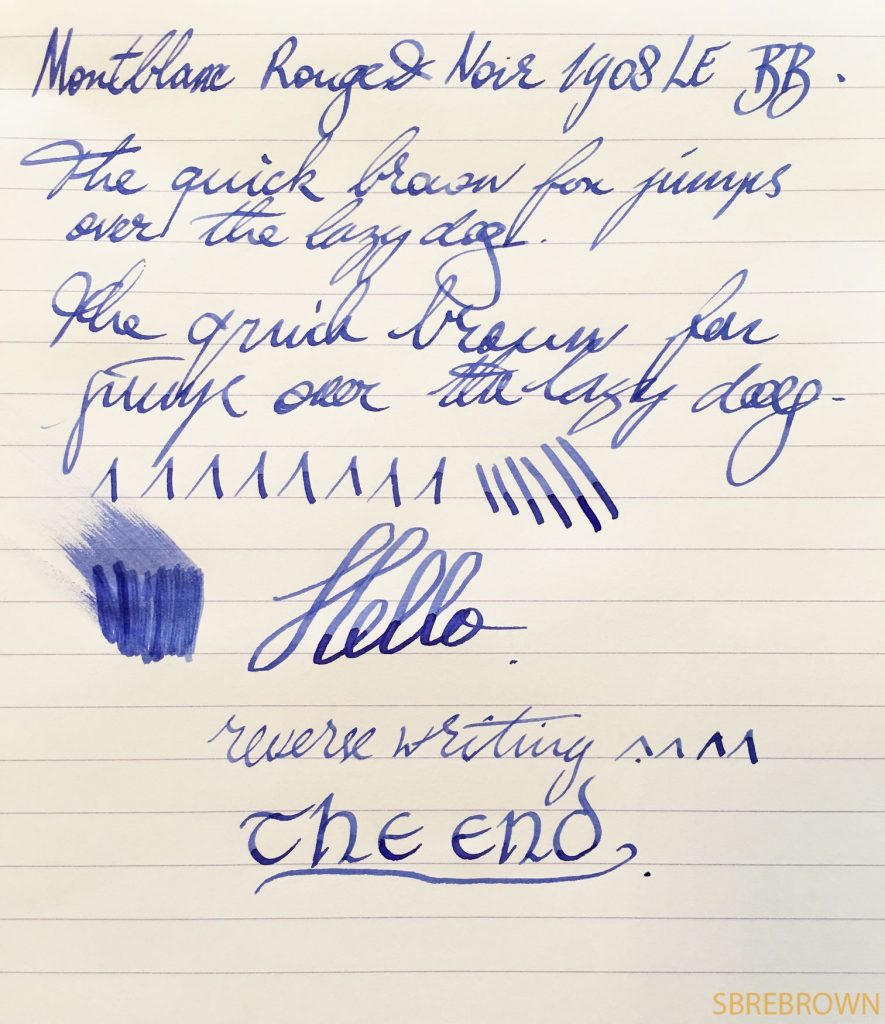 Montblanc Rouge & Noir 1908 LE BB.
The quick brown fox jumps
over the lazy dog.
The quick brown fox
jumps over the lazy dog.
Hello.
reverse writing
The End.
SBREBROWN